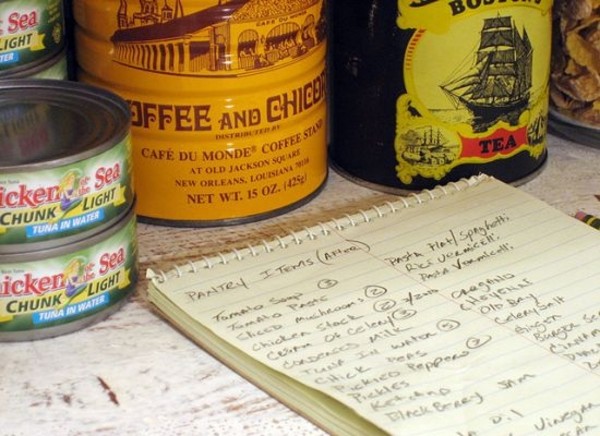 Sea
LIGHT
TER
COFFEE AND CHICOR
DISTRIBUTED BY
CAFÉ DU MONDE® COFFEE STAND
AT OLD JACKSON SQUARE
NEW ORLEANS, LOUISIANA 70116
NET WT. 15 OZ. (425g)
BOSTON
TEA
icken of the Sea
CHUNK LIGHT
TUNA IN WATER
icken of the Sea
CHUNK LIGHT
TUNA IN WATER
PANTRY ITEMS (AFTER)
Tomato Soup 3
Tomato Paste
Sliced Mushrooms 2
Chicken Stock 2
Cream of Celery 3
Condensed Milk
Tuna in Water 5
Chick Peas
Pickled Peppers 2
Pickles
Ketchup
Blackberry Jam
Pasta Flat/Spaghetti
Rice Vermicelli
Pasta Vermicelli
Oregano
Cheyenne
Old Bay
Celery Salt
Ginger
Burger Sea
Cinnam
oil
Vinegar